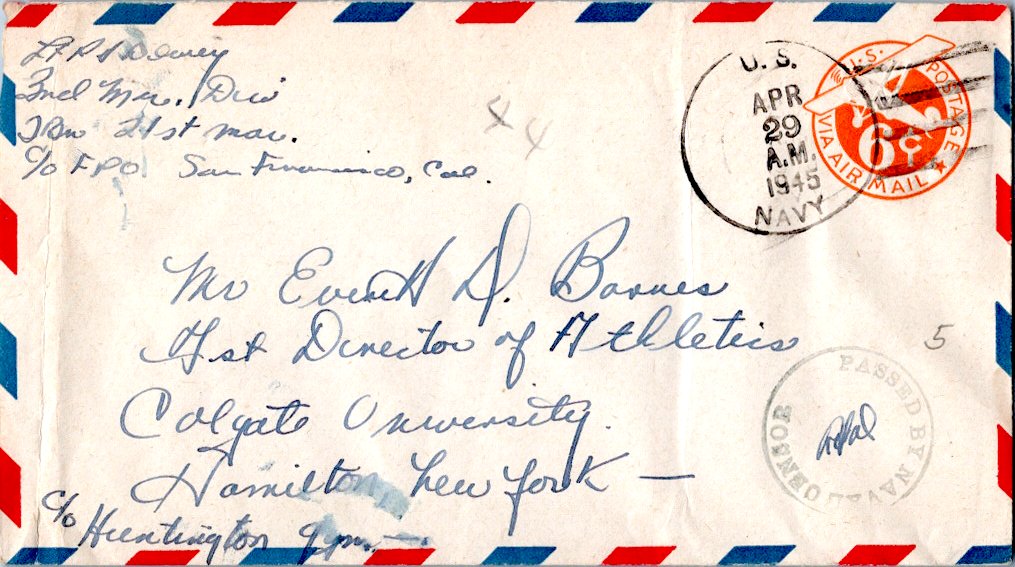 Lt. P S Dewey
3rd Mar. Div
3 Bn 21st mar.
c/o F.P.O. San Francisco, Cal.
4 4
U.S.
APR
29
A.M.
1945
NAVY
U.S. POSTAGE
6¢
VIA AIR MAIL
Mr Everett D. Barnes
Asst Director of Athletics
Colgate University.
Hamilton, New York —
c/o Huntington Gym. —
5
PASSED BY NAVAL CENSOR